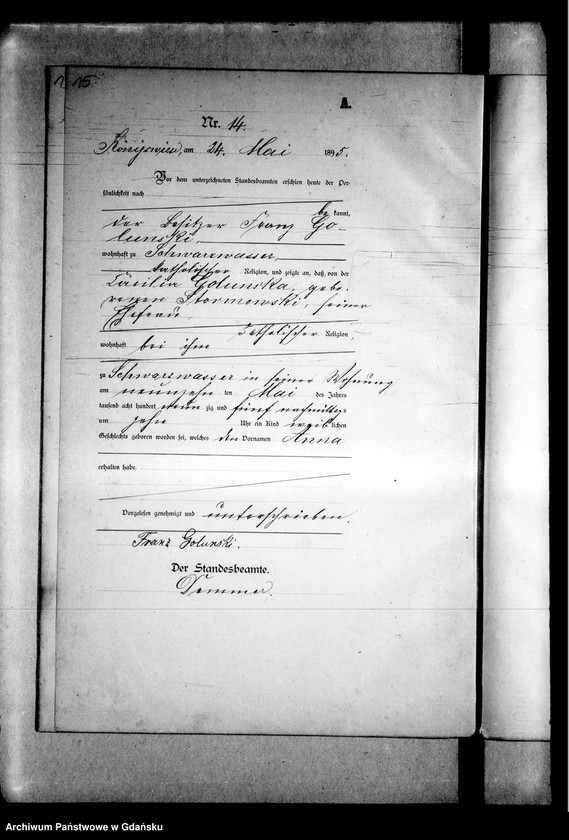 15.
A.
Nr. 14.
am 24. Mai 1895.
Vor dem unterzeichneten Standesbeamten erschien heute der Per-
sönlichkeit nach
be kannt,
der Besitzer Franz Go-
lunski,
wohnhaft zu Schwarzwasser,
katholischer Religion, und zeigte an, daß von der
Cäcilia Golunska, gebo-
renen Stormowski, seiner
Ehefrau
katholischer Religion,
wohnhaft bei ihm
zu Schwarzwasser in seiner Wohnung
am neunzehn ten Mai des Jahres
tausend acht hundert neun zig und fünf nachmittags
um zehn Uhr ein Kind weiblichen
Geschlechts geboren worden sei, welches den Vornamen Anna
erhalten habe.
Vorgelesen, genehmigt und unterschrieben.
Franz Golunski.
Der Standesbeamte.
Archiwum Państwowe w Gdańsku